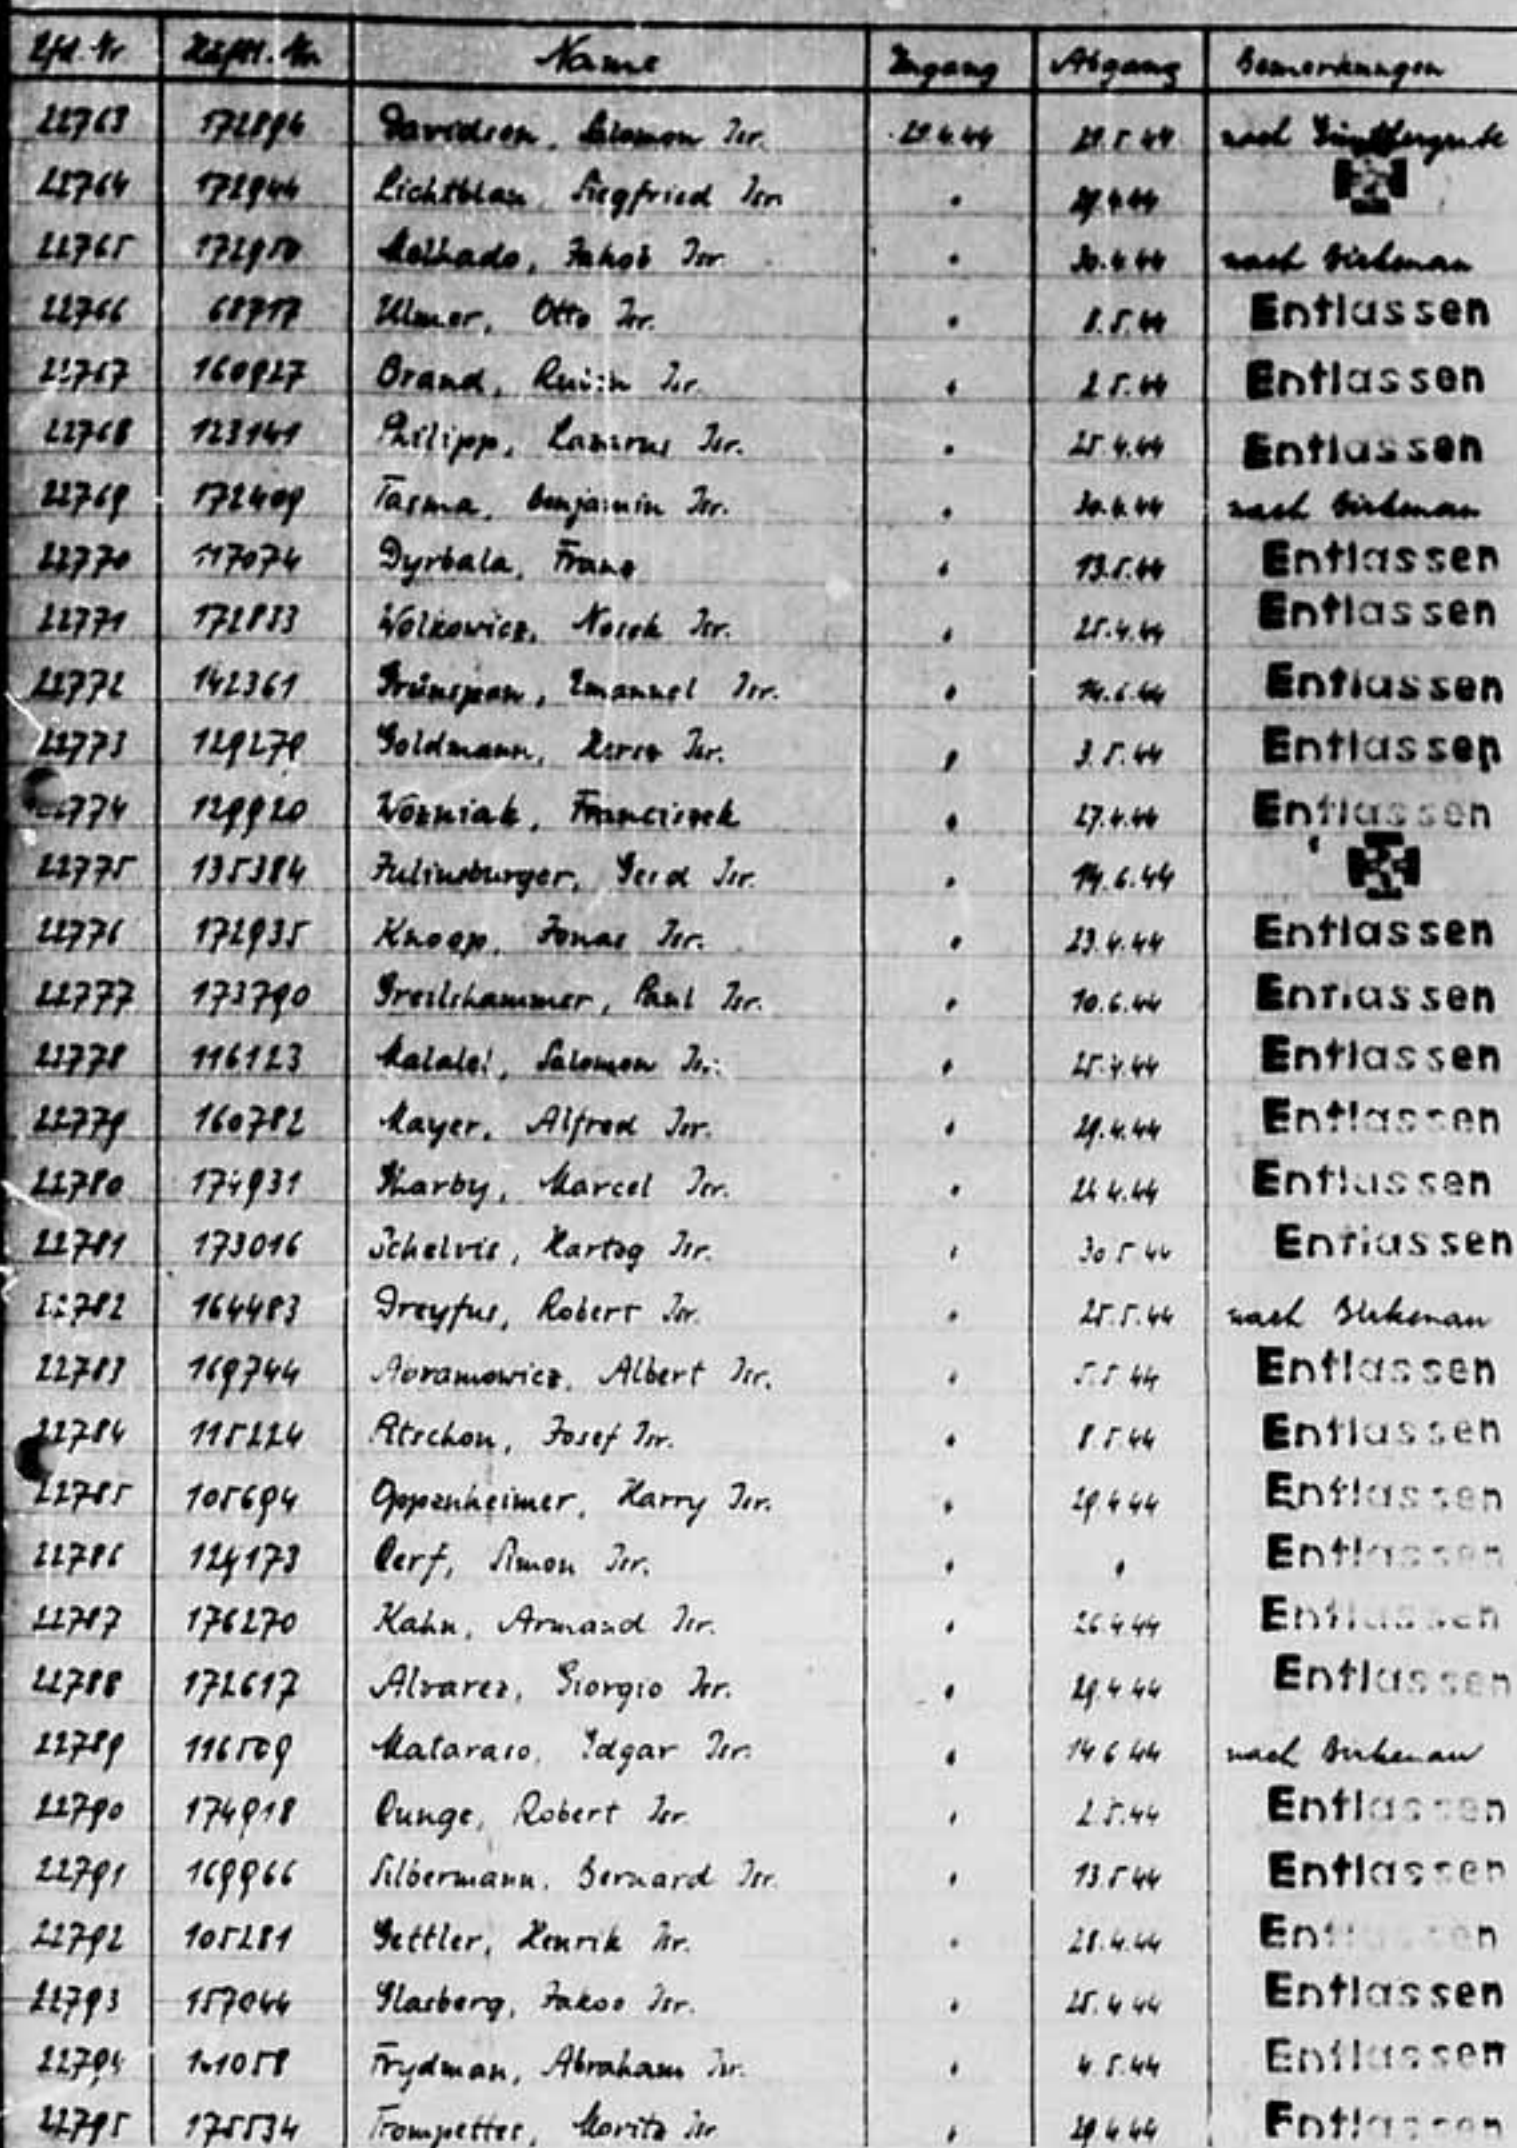 Lfd. Nr Häftl. Nr. Name Zugang Abgang Bemerkungen
22763 172894 Davidson, Salomon Isr. 29.5.44 nach
22764 172944 Lichtblau, Siegfried Isr. " 29.4.44
22765 172950 Jakob Isr. " 30.4.44 nach Birkenau
22766 68717 Ulmer, Otto Isr. " 8.5.44 Entlassen
22767 160927 Brand, Isr. " 2.5.44 Entlassen
22768 123141 Philipp, Lazarus Isr. " 25.4.44 Entlassen
22769 172409 Tasma, Benjamin Isr. " 30.4.44 nach Birkenau
22770 117074 Dyrbala, Franz " 13.5.44 Entlassen
22771 172833 Wolkowicz, Nosek Isr. " 25.4.44 Entlassen
22772 142361 Grünspan, Emanuel Isr. " 14.6.44 Entlassen
22773 129279 Goldmann, Isr. " 3.5.44 Entlassen
22774 129920 Wozniak, Franciszek " 27.4.44 Entlassen
22775 135384 Juliusburger, Gerd Isr. " 14.6.44
22776 172935 Knoop, Jonas Isr. " 23.4.44 Entlassen
22777 173790 Greilshammer, Paul Isr. " 10.6.44 Entlassen
22778 116123 Salomon Isr. " 25.4.44 Entlassen
22779 160782 Mayer, Alfred Isr. " 29.4.44 Entlassen
22780 174931 Marcel Isr. " 26.4.44 Entlassen
22781 173016 Schelvis, Hartog Isr. " 30.5.44 Entlassen
22782 164483 Dreyfus, Robert Isr. " 25.5.44 nach Birkenau
22783 169744 Abramowicz, Albert Isr. " 5.5.44 Entlassen
22784 115224 Josef Isr. " 8.5.44 Entlassen
22785 105694 Oppenheimer, Harry Isr. " 29.4.44 Entlassen
22786 124173 Cerf, Simon Isr. " " Entlassen
22787 176270 Kahn, Armand Isr. " 26.4.44 Entlassen
22788 172617 Alvarez, Giorgio Isr. " 29.4.44 Entlassen
22789 116509 Mataraso, Edgar Isr. " 14.6.44 nach Birkenau
22790 174918 Robert Isr. " 2.5.44 Entlassen
22791 169966 Silbermann, Bernard Isr. " 13.5.44 Entlassen
22792 105281 Gettler, Henrik Isr. " 28.4.44 Entlassen
22793 157044 Glasberg, Jakob Isr. " 25.4.44 Entlassen
22794 Frydman, Abraham Isr. " 4.5.44 Entlassen
22795 175534 Trompetter, Moritz Isr. " 29.4.44 Entlassen